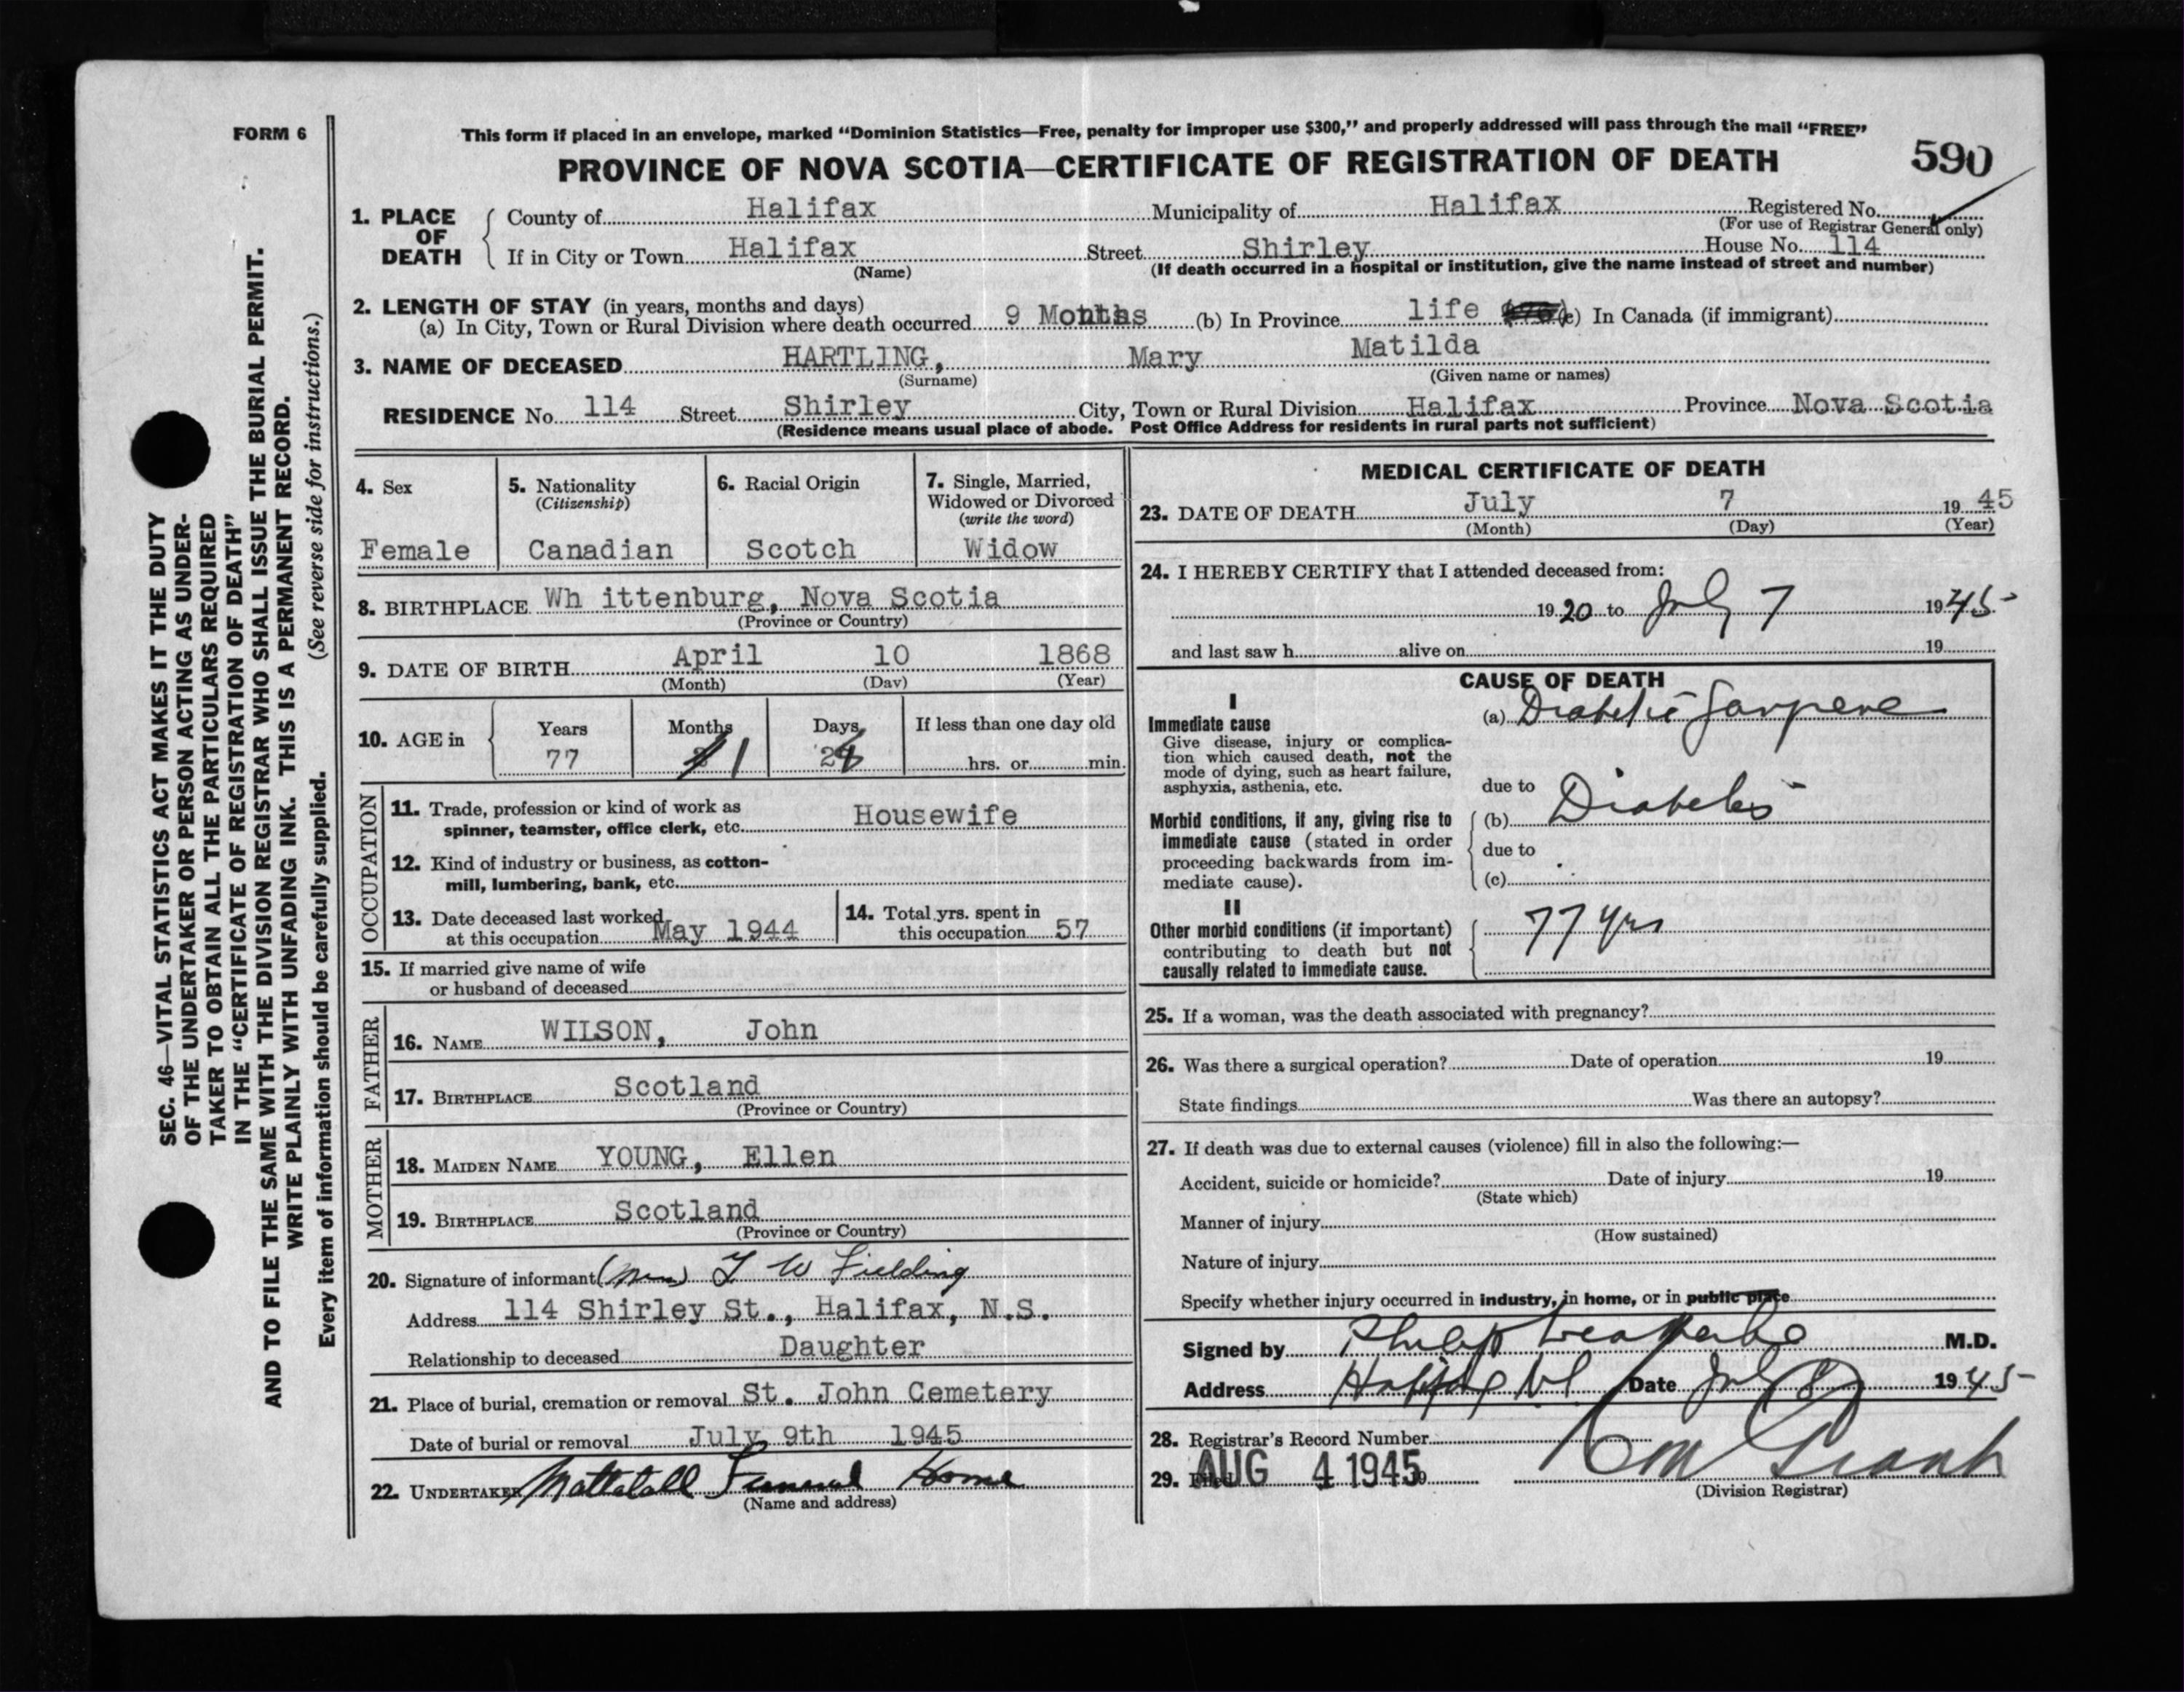 FORM 6
This form if placed in an envelope, marked “Dominion Statistics—Free, penalty for improper use $300,” and properly addressed will pass through the mail “FREE”
PROVINCE OF NOVA SCOTIA—CERTIFICATE OF REGISTRATION OF DEATH 590
1. PLACE OF DEATH
County of Halifax Municipality of Halifax Registered No.
(For use of Registrar General only)
If in City or Town Halifax Street Shirley House No. 114
(Name) (If death occurred in a hospital or institution, give the name instead of street and number)
2. LENGTH OF STAY (in years, months and days)
(a) In City, Town or Rural Division where death occurred 9 Months (b) In Province life (c) In Canada (if immigrant)
3. NAME OF DECEASED HARTLING, Mary Matilda
(Surname) (Given name or names)
RESIDENCE No. 114 Street Shirley City, Town or Rural Division Halifax Province Nova Scotia
(Residence means usual place of abode. Post Office Address for residents in rural parts not sufficient)
SEC. 46—VITAL STATISTICS ACT MAKES IT THE DUTY
OF THE UNDERTAKER OR PERSON ACTING AS UNDER-
TAKER TO OBTAIN ALL THE PARTICULARS REQUIRED
IN THE “CERTIFICATE OF REGISTRATION OF DEATH”
AND TO FILE THE SAME WITH THE DIVISION REGISTRAR WHO SHALL ISSUE THE BURIAL PERMIT.
WRITE PLAINLY WITH UNFADING INK. THIS IS A PERMANENT RECORD.
Every item of information should be carefully supplied. (See reverse side for instructions.)
4. Sex
Female
5. Nationality
(Citizenship)
Canadian
6. Racial Origin
Scotch
7. Single, Married,
Widowed or Divorced
(write the word)
Widow
8. BIRTHPLACE Wh ittenburg, Nova Scotia
(Province or Country)
9. DATE OF BIRTH April 10 1868
(Month) (Day) (Year)
10. AGE in
Years Months Days If less than one day old
77 hrs. or min.
OCCUPATION
11. Trade, profession or kind of work as
spinner, teamster, office clerk, etc. Housewife
12. Kind of industry or business, as cotton-
mill, lumbering, bank, etc.
13. Date deceased last worked
at this occupation May 1944
14. Total yrs. spent in
this occupation 57
15. If married give name of wife
or husband of deceased
FATHER
16. NAME WILSON, John
17. BIRTHPLACE Scotland
(Province or Country)
MOTHER
18. MAIDEN NAME YOUNG, Ellen
19. BIRTHPLACE Scotland
(Province or Country)
20. Signature of informant (Mrs) T W Fielding
Address 114 Shirley St., Halifax, N.S.
Relationship to deceased Daughter
21. Place of burial, cremation or removal St. John Cemetery
Date of burial or removal July 9th 1945
22. UNDERTAKER Mattatall Funeral Home
(Name and address)
MEDICAL CERTIFICATE OF DEATH
23. DATE OF DEATH July 7 19 45
(Month) (Day) (Year)
24. I HEREBY CERTIFY that I attended deceased from:
1920 to July 7 1945
and last saw h alive on 19
CAUSE OF DEATH
I
Immediate cause
Give disease, injury or complica-
tion which caused death, not the
mode of dying, such as heart failure,
asphyxia, asthenia, etc.
(a) Diabetic Gangrene
due to
Morbid conditions, if any, giving rise to
immediate cause (stated in order
proceeding backwards from im-
mediate cause).
(b) Diabetes
due to
(c)
II
Other morbid conditions (if important)
contributing to death but not
causally related to immediate cause.
77 yrs
25. If a woman, was the death associated with pregnancy?
26. Was there a surgical operation? Date of operation 19
State findings Was there an autopsy?
27. If death was due to external causes (violence) fill in also the following:—
Accident, suicide or homicide? Date of injury 19
(State which)
Manner of injury
(How sustained)
Nature of injury
Specify whether injury occurred in industry, in home, or in public place
Signed by Philip Weatherbe M.D.
Address Halifax NS Date July 8 1945
28. Registrar's Record Number
29. Filed AUG 4 1945 19
Grant
(Division Registrar)